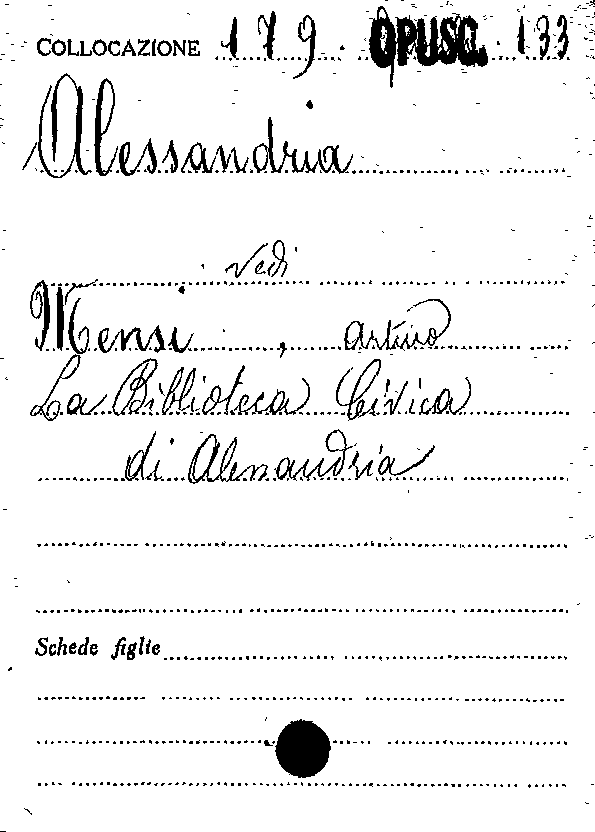 COLLOCAZIONE 179. OPUSC. 133
Alessandria
vedi
Mensi, Arturo
La Biblioteca Civica
di Alessandria
Schede figlie